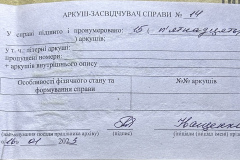 АРКУШ-ЗАСВІДЧУВАЧ СПРАВИ № 14
У справі підшито і пронумеровано: 15 ( п'ятнадцять
) аркушів,
У т. ч.: літерні аркуші
пропущені номери:
+ аркушів внутрішнього опису
Особливості фізичного стану та формування справи
№№ аркушів
(підпис)
01